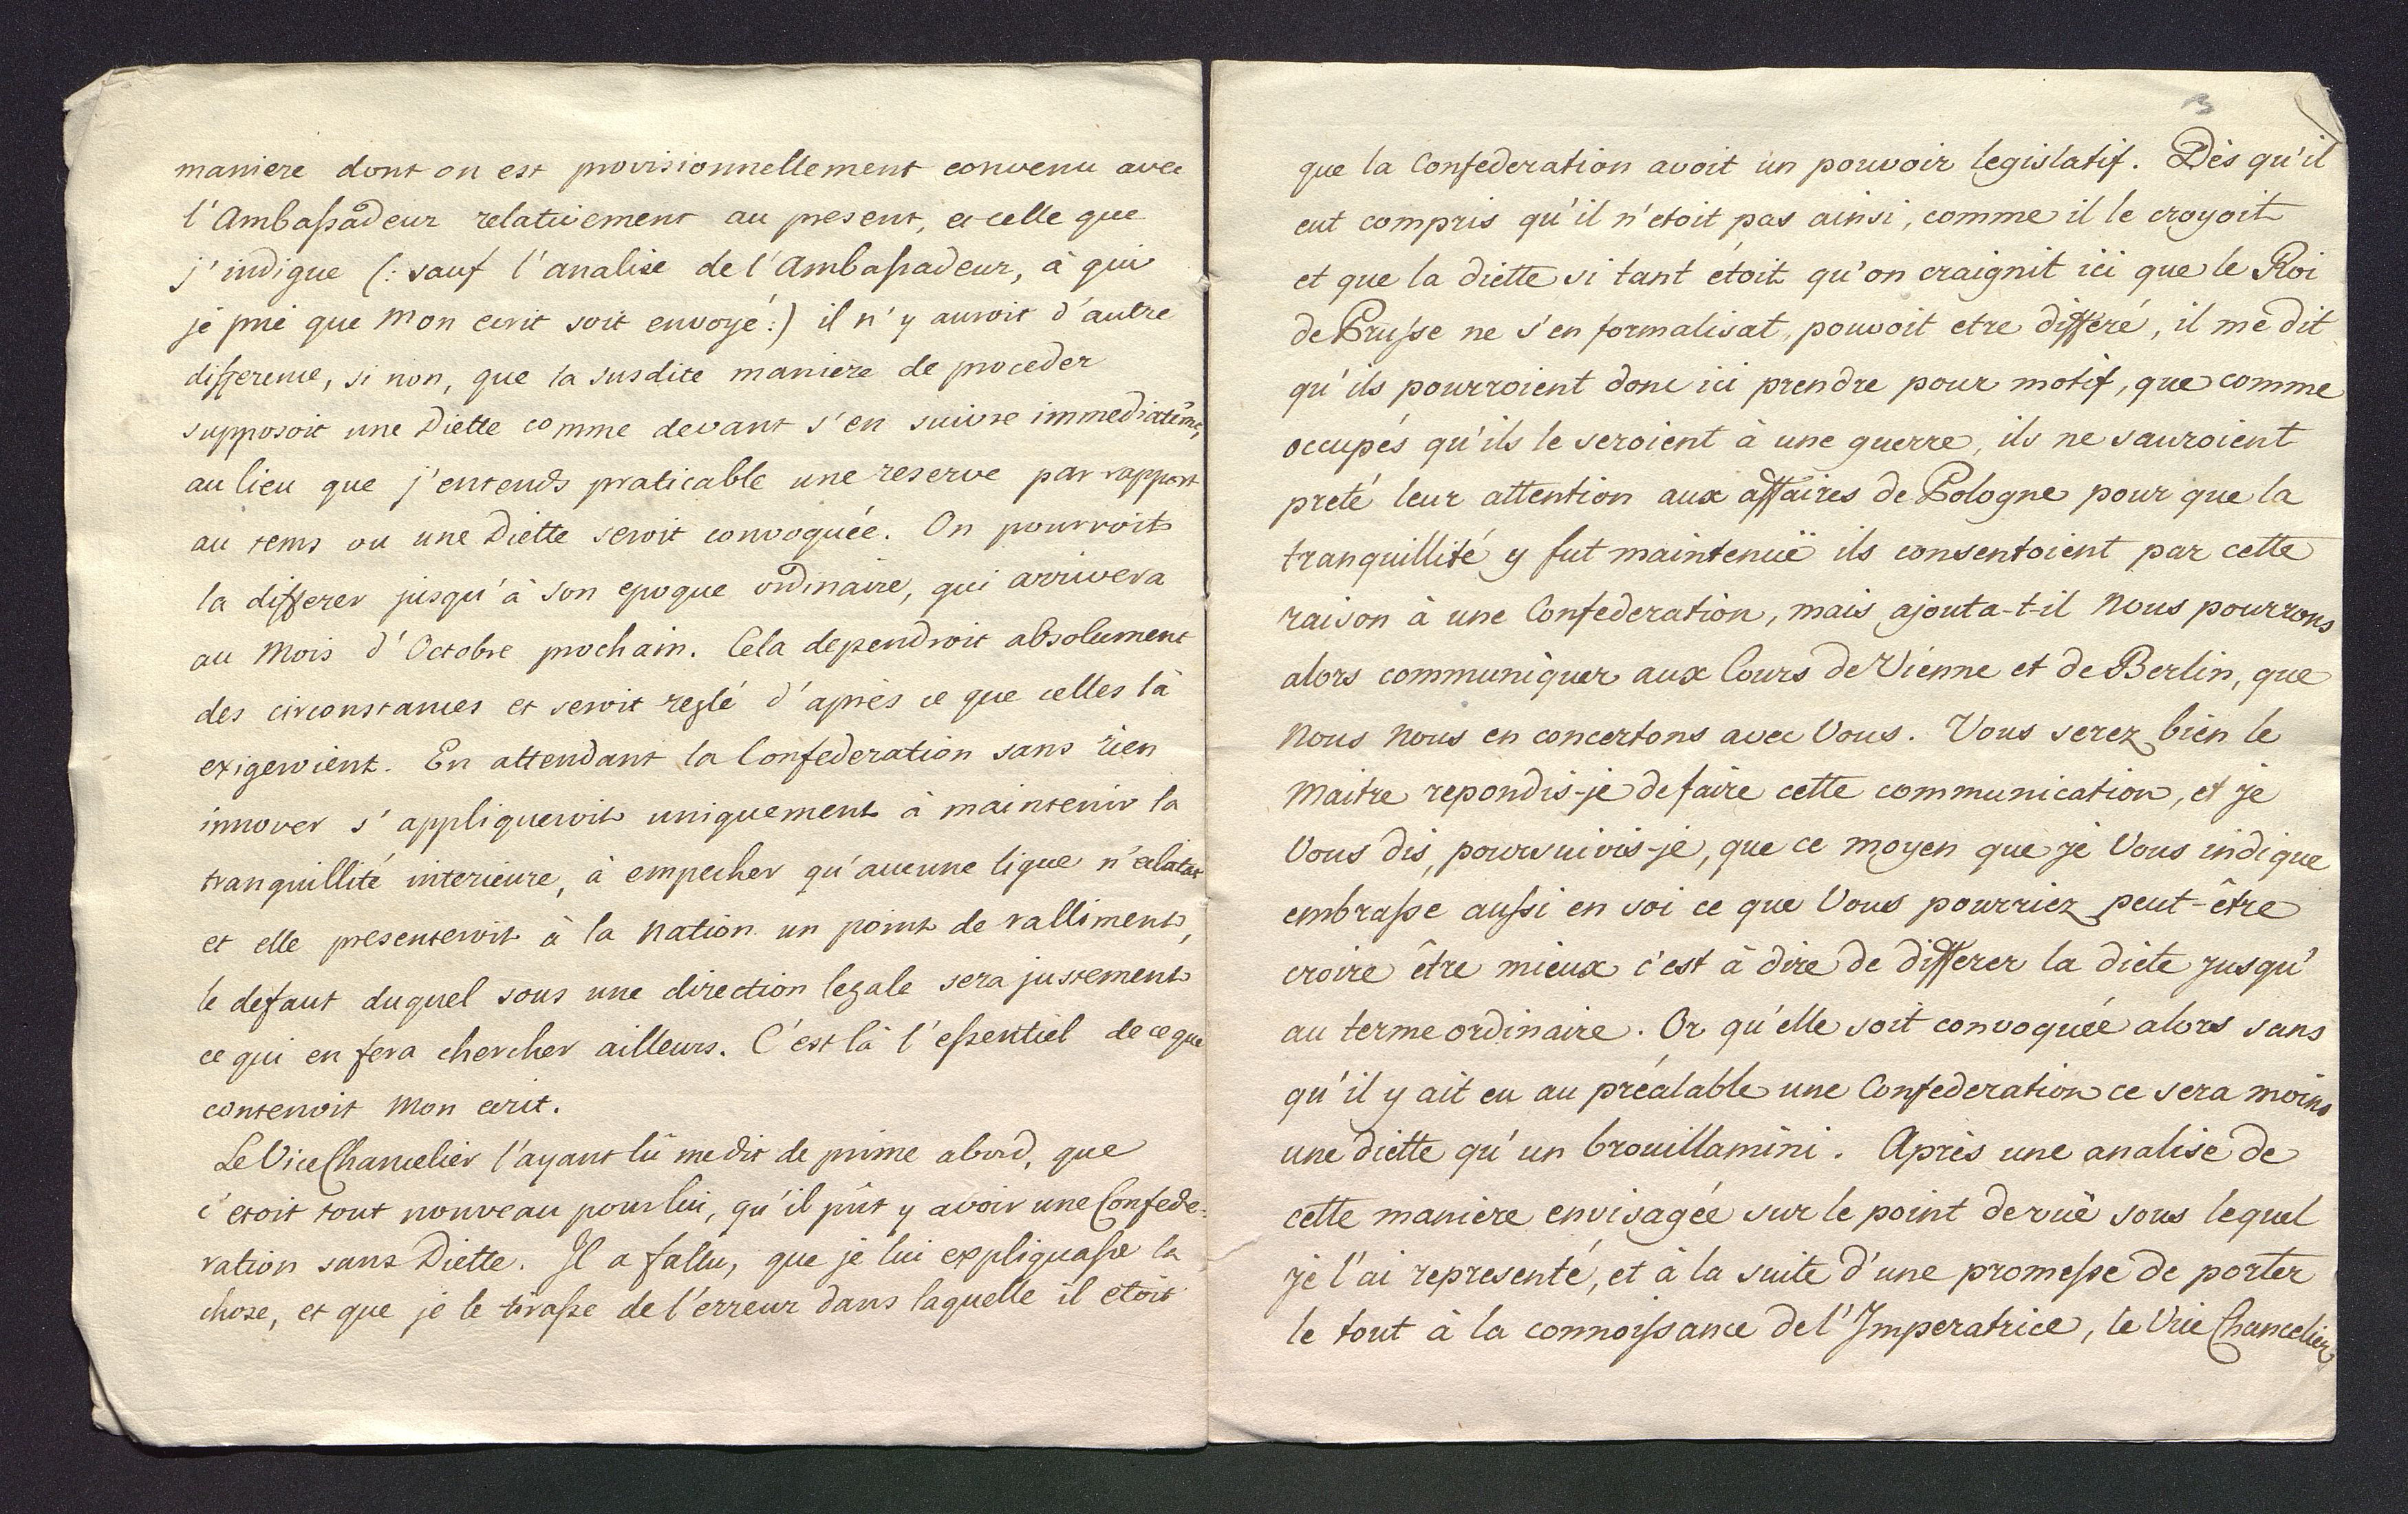 maniere dont on est provisionnellement convenu avec
l'Ambaſsadeur relativement au present, et celle que
j'indique (: sauf l'analise de l'Ambaſsadeur, à qui
je prie que Mon ecrit soit envoyé :) il n'y auroit d'autre
difference, si non, que la susdite maniere de proceder
supposoit une Diette comme devant s'en suivre immediatem̃t,
au lieu que j'entends praticable une reserve par rapport
au tems ou une Diette seroit convoquée. On pourroit
la differer jusqu'à son epoque ordinaire, qui arrivera
au Mois d'Octobre prochain. Cela dependroit absolument
des circonstances et seroit reglé d'après ce que celles là
exigeroient. En attendant la Confederation sans rien
innover s'appliqueroit uniquement à maintenir la
tranquillité interieure, à empecher qu'aucune ligue n'eclatat
et elle presenteroit à la Nation un point de ralliment,
le defaut duquel sous une direction legale sera justement
ce qui en fera chercher ailleurs. C'est là l'eſsentiel de ce que
contenoit Mon ecrit.
Le Vice Chancelier l'ayant lû me dit de prime abord, que
c'etoit tout nouveau pour lui, qu'il pût y avoir une Confede=
ration sans Diette. Il a fallu, que je lui expliquaſse la
chose, et que je le tiraſse de l'erreur dans laquelle il etoit
que la Confederation avoit un pouvoir legislatif. Dès qu'il
eut compris qu'il n'etoit pas ainsi, comme il le croyoit
et que la diette si tant étoit qu'on craignit ici que le Roi
de Pruſse ne s'en formalisat, pouvoit etre differé, il me dit
qu'ils pourroient donc ici prendre pour motif, que comme
occupés qu'ils le seroient à une guerre, ils ne sauroient
preté leur attention aux affaires de Pologne pour que la
tranquillité y fut maintenuë ils consentoient par cette
raison à une Confederation, mais ajouta-t-il Nous pourrons
alors communiquer aux Cours de Vienne et de Berlin, que
Nous Nous en concertons avec Vous. Vous serez bien le
Maitre repondis-je de faire cette communication, et je
Vous dis, poursuivis-je, que ce moyen que je Vous indique
embraſse auſsi en soi ce que Vous pourriez peut-être
croire être mieux c'est à dire de differer la diete jusqu'
au terme ordinaire. Or qu'elle soit convoquée alors sans
qu'il y ait eu au préalable une Confederation ce sera moins
une diette qu'un brouillamini. Après une analise de
cette maniere envisagée sur le point de vuë sous lequel
je l'ai representé, et à la suite d'une promeſse de porter
le tout à la connoiſsance de l'Imperatrice, le Vice Chancelier